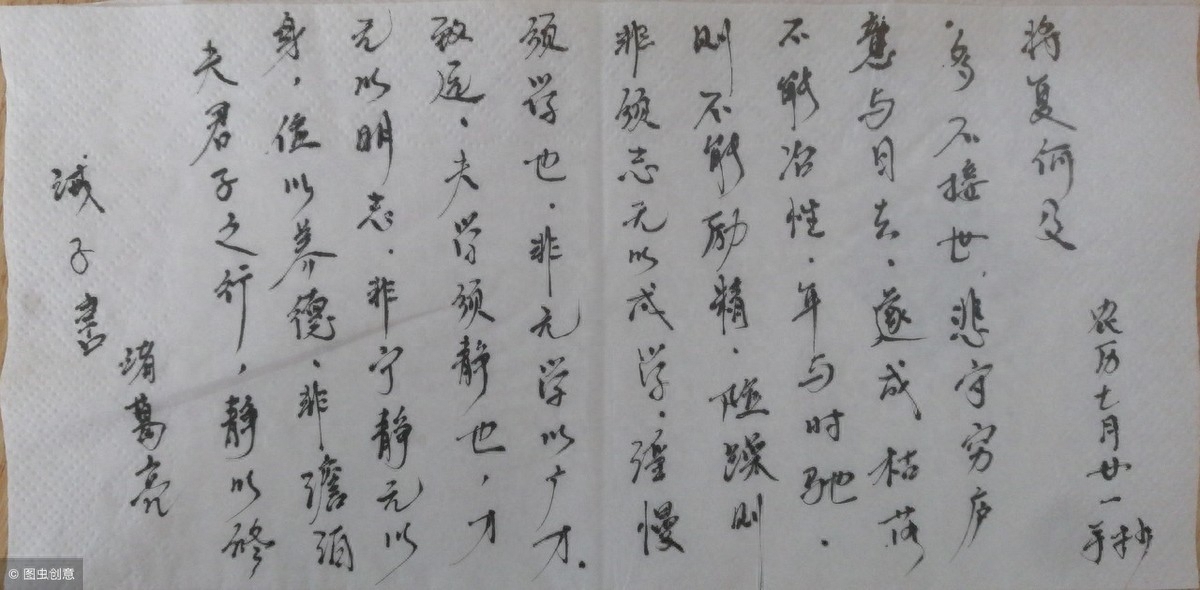 诫子书
诸葛亮
夫君子之行，静以修
身，俭以养德．非澹泊
无以明志．非宁静无以
致远．夫学须静也，才
须学也．非无学以广才．
非须志无以成学．淫慢
则不能励精．险躁则
不能冶性．年与时驰．
意与日去．遂成枯落
．多不接世，悲守穷庐
将复何及
农历七月廿一
手抄
© 图虫创意